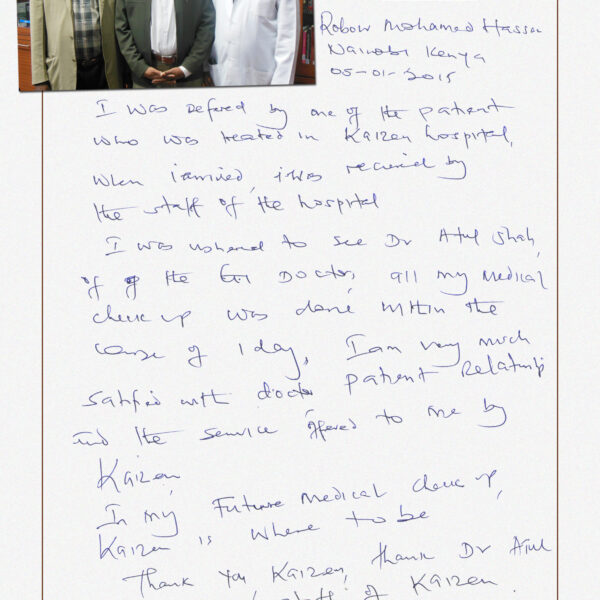 Robow Mohamed Hassan
Nairobi Kenya
05-01-2015
I was refered by one of the patient
who was treated in Kaizen hospital,
when i arrived, i was received by
the staff of the hospital
I was ushered to see Dr Atul Shah,
of the GI Doctor, all my medical
check up was done within the
course of 1 day, I am very much
satified with doctor patient Relationship
and the service offered to me by
Kaizen
In my Future medical check up,
Kaizen is where to be
Thank you Kaizen, thank Dr Atul
staff of Kaizen.